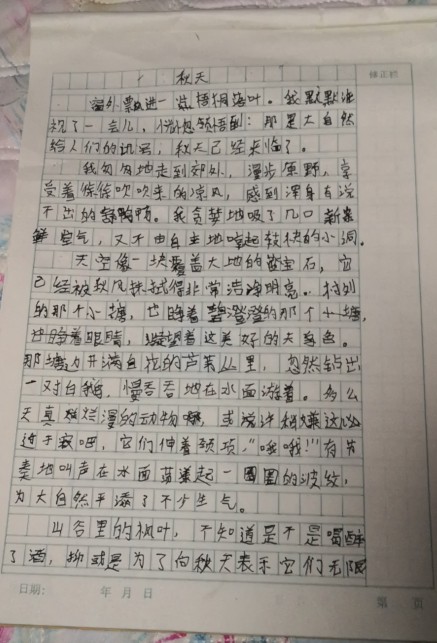 秋天
修正栏
窗外飘进一片梧桐落叶。我默默注
视了一会儿，恍然领悟到：那是大自然
给人们的讯号，秋天已经来临了。
我匆匆地走到郊外，漫步原野，享
受着徐徐吹来的凉风，感到浑身有说
不出的舒畅。我贪婪地吸了几口新
鲜空气，又不由自主地哼起轻快的小调。
天空像一块覆盖大地的蓝宝石，它
已经被秋风抹拭得非常洁净明亮。村外
的那个小塘，也睁着碧澄澄的那个小塘，
也睁着眼睛，凝望着这美好的天色。
那塘开满白花的芦苇丛里，忽然钻出
一对白鹅，慢吞吞地在水面游着。多么
天真烂漫的动物啊，或许稍嫌这
过于寂吧，它们伸着颈项，“哦哦！”有节
奏地叫声在水面荡起一圈圈的波纹，
为大自然平添了不少生气。
山谷里的枫叶，不知道是不是喝醉
了酒，抑或是为了向秋天表示它们无限
日期： 年 月 日
第 页